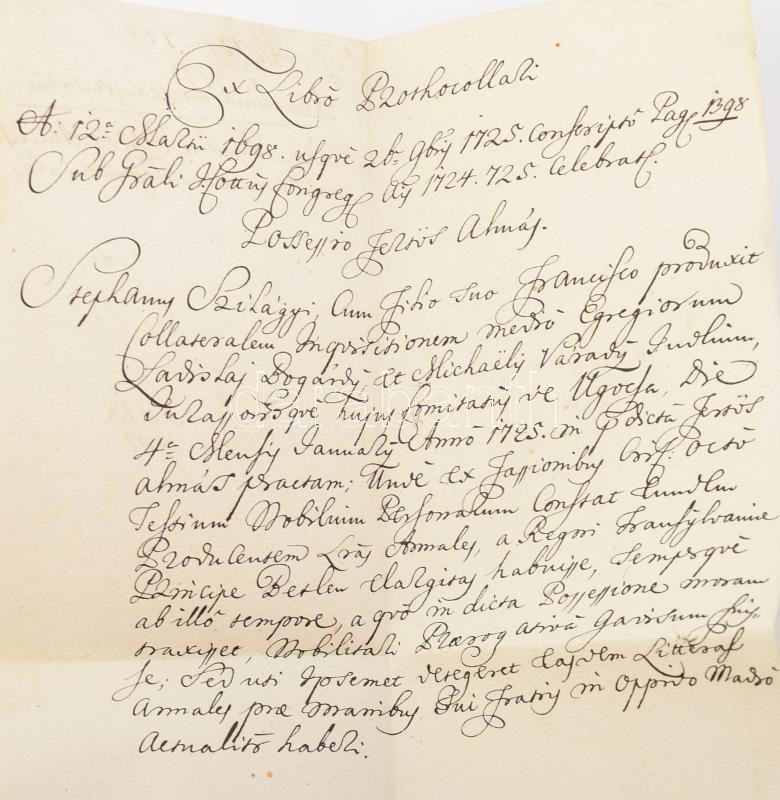 Ex Libro Prothocollari
A: 12ᵃ Martii 1698. usqve 2ᵇ 9bris 1725. Conscripto Pag 1398
Sub Grãli Cottus Congreg Ai 1724. 725. Celebrat.
Possessio Fertös Almás.
Stephanus Szilágyi, Cum Filio suo Francisco produxit
Collateralem Inqvisitionem medio Egregiorum
Ladislai Bogárdy, et Michaëlis Várady Judlium,
Jurassorisqve hujus Comitatus de Ugocsa, Die
4ᵃ Mensis January Anno 1725. in pdicta Fertös
almás peractam; Unde Ex Fassionibus octo
Testium Nobilium Personalium Constat Eundem
Producentem Lrãs Armales, a Regni Transylvaniæ
Principe Betlen Elargitas habuisse, semperqve
ab illo tempore, a qvo in dicta Possessione moram
traxisset, Nobilitari Prærogativa Gavisum fuis-
se; Sed uti Ipsemet detegeret Easdem Litteras
Armales præ manibus Sui Fratris in Oppido Madro
Actualitr haberi.
darabanth